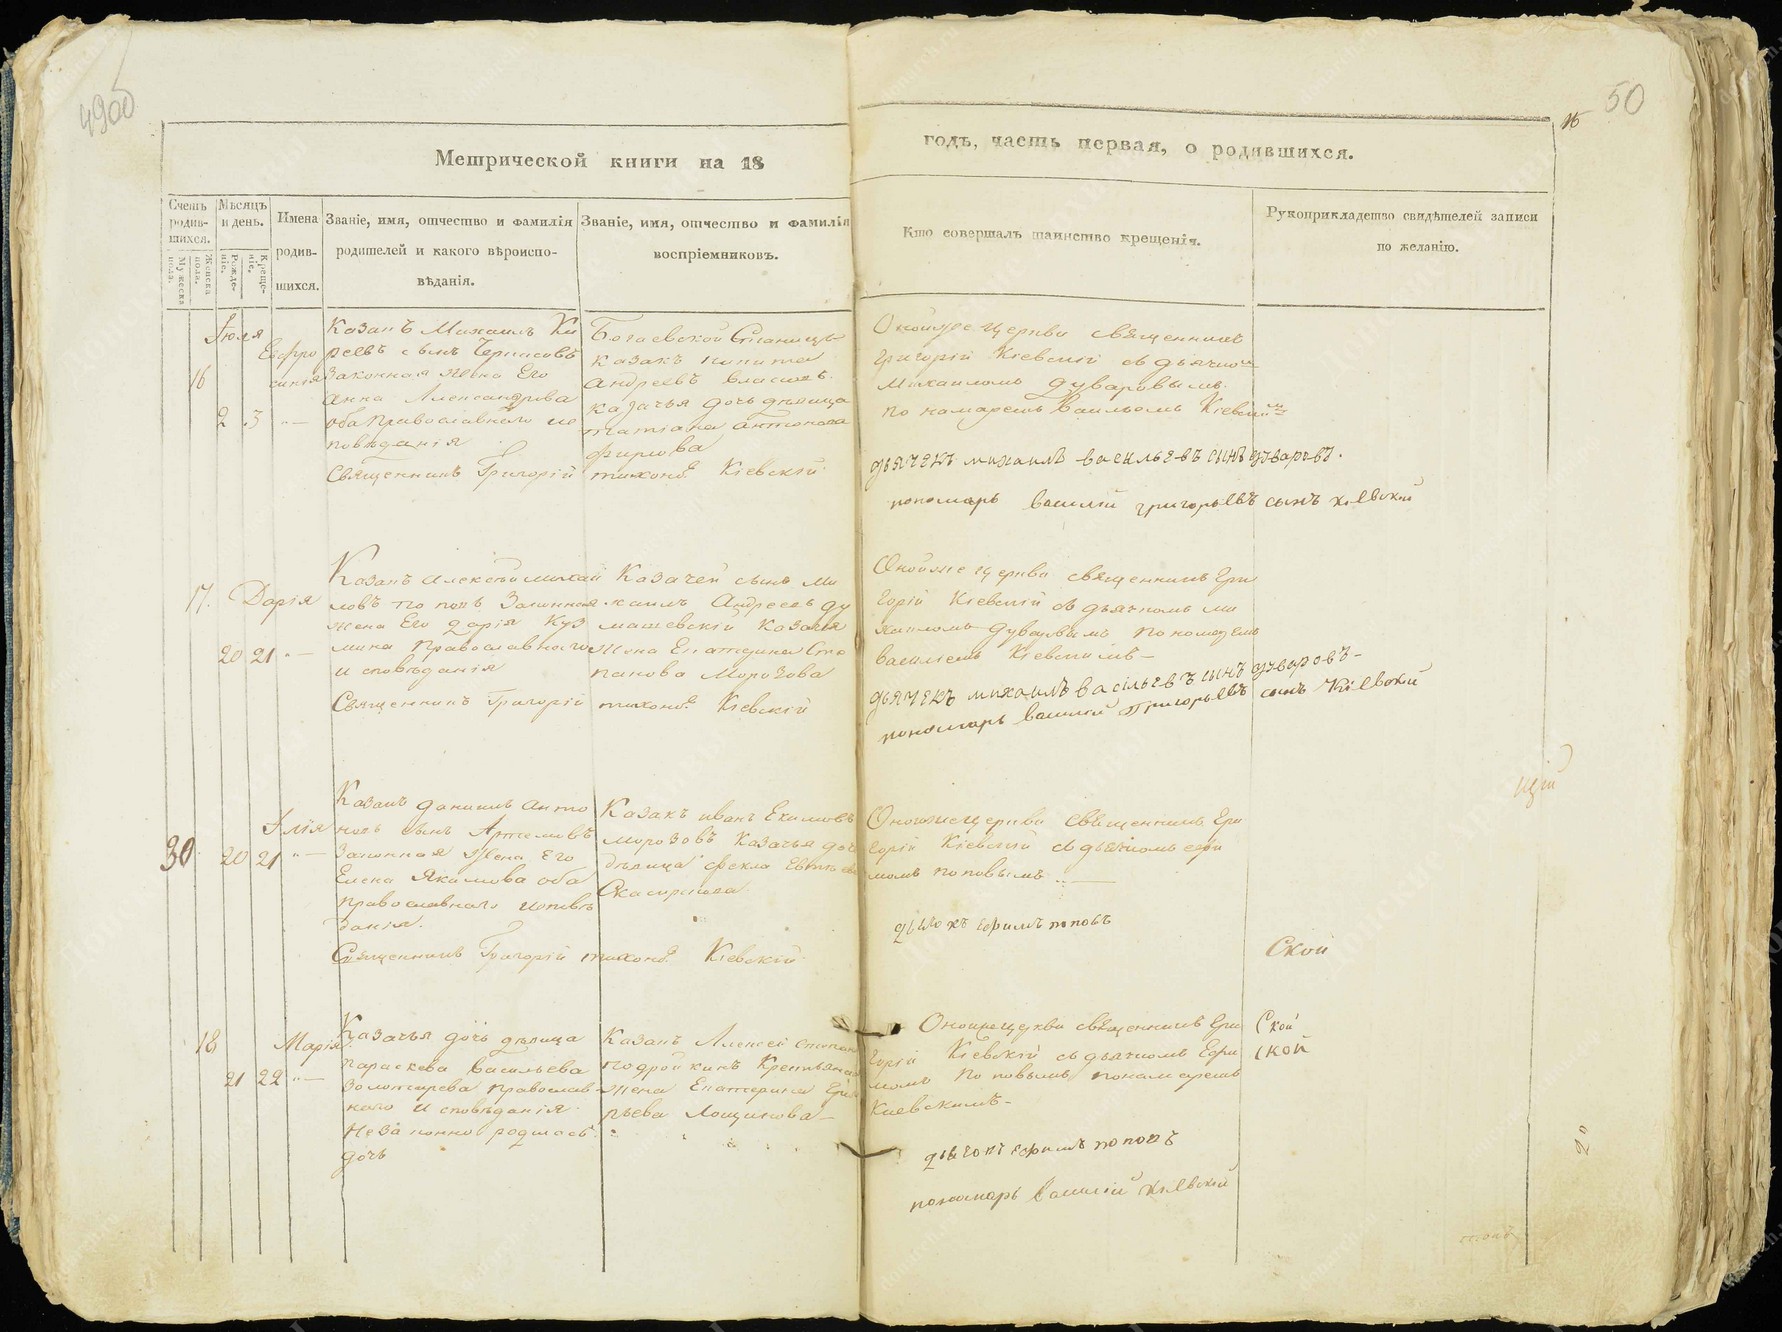 4900
50
Метрической книги на 18
годъ, часть первая, о родившихся.
Счетъ родив-шихся.
Мѣсяцъ и день.
Имена родив-шихся.
Званіе, имя, отчество и фамилія родителей и какого вѣроиспо-вѣданія.
Званіе, имя, отчество и фамилія воспріемниковъ.
Кто совершалъ таинство крещенія.
Рукоприкладство свидѣтелей записи по желанію.
Мужеска пола.
Женска пола.
Рожде-ніе.
Креще-ніе.
Іюля
16
2 3
Евфро
синія
Казакъ Михаилъ Ки
реевъ сынъ
Законная жена Его
Анна Александрова
оба Православнаго ис
повѣданія
Священникъ Григорій Тихоновъ Кіевскій
Богаевской Станицы
казакъ Никита
Андреевъ Власовъ
казачья дочь дѣвица
татіана Антонова
Фирсова
Онойже церкви священникъ
Григорій Кіевскій съ дьячкомъ
Михаиломъ Дуваровымъ
пономаремъ Васильемъ Кіевскимъ
дьячекъ михаилъ васильевъ сынъ дуваровъ.
пономарь василій григорьевъ сынъ кіевской
17. Дарія
20 21
Казакъ Алексѣй Михай
ловъ Поповъ Законная
жена Его Дарія Куз
мина Православнаго
исповѣданія
Священникъ Григорій Тихоновъ Кіевскій
Казачей сынъ Ми
хаилъ Андреевъ Ду
машевскій казачья
жена Екатерина Сте
панова Морозова
Онойже церкви священникъ Гри
горій Кіевскій съ дьячкомъ Ми
хаиломъ Дуваровымъ пономаремъ
Василіемъ Кіевскимъ
дьячекъ михаилъ васильевъ сынъ дуваровъ
пономарь василій Григорьевъ сынъ Кіевской
30
20 21
Илія
Казакъ Даніилъ Анто
новъ сынъ Артемовъ
Законная Жена Его
Елена Якимова оба
православнаго исповѣ
данія.
Священникъ Григорій Тихоновъ Кіевскій
Казакъ Иванъ Екимовъ
Морозовъ Казачья дочь
дѣвица Фекла
Онойже церкви священникъ Гри
горій Кіевскій съ дьячкомъ Ефи
момъ Поповымъ
дьячокъ Ефимъ поповъ
Ской
18
21 22
Марія
Казачья дочь дѣвица
Параскева Васильева
Золотарева православ
наго исповѣданія
Незаконно родилась
дочь
Казакъ Алексей Степан
Подройкинъ Крестьянская
жена Екатерина Григо
рьева Лощилова
Онойже церкви священникъ Гри
горій Кіевскій съ дьячкомъ Ефи
момъ Поповымъ пономаремъ
Кіевскимъ
дьячокъ Ефимъ поповъ
пономарь Василій Кіевской
Ской
ской